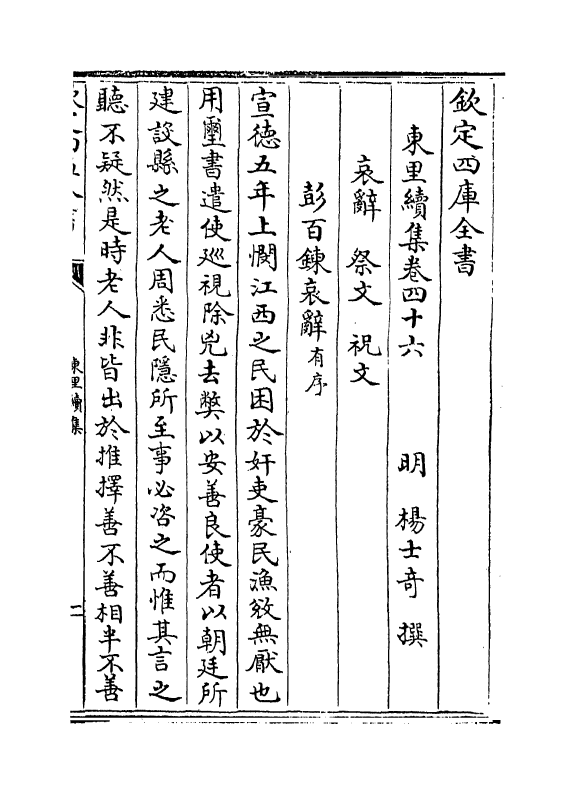 欽定四庫全書
東里續集卷四十六　明　楊士奇　撰
哀辭　祭文　祝文
彭百鍊哀辭有序
宣徳五年上閔江西之民困於奸吏豪民漁斂無厭也
用璽書遣使廵視除兇去獘以安善良使者以朝廷所
建設縣之老人周悉民隱所至事必咨之而惟其言之
聽不疑然是時老人非皆出於推擇善不善相半不善
東里續集